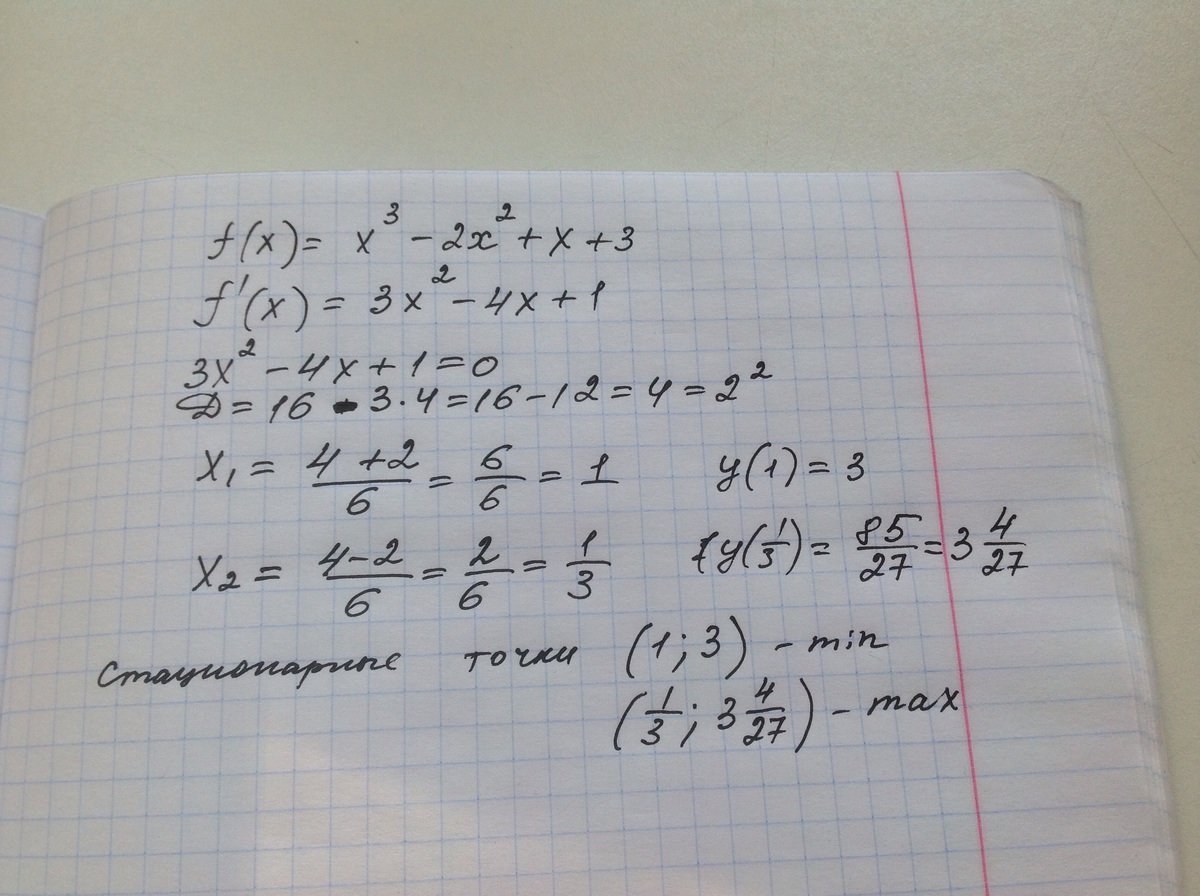 f(x) = x³ - 2x² + x + 3
f'(x) = 3x² - 4x + 1
3x² - 4x + 1 = 0
D = 16 - 3·4 = 16 - 12 = 4 = 2²
x₁ = (4+2)/6 = 6/6 = 1 y(1) = 3
x₂ = (4-2)/6 = 2/6 = 1/3 y(1/3) = 85/27 = 3 4/27
Стационарные точки (1; 3) - min
(1/3; 3 4/27) - max